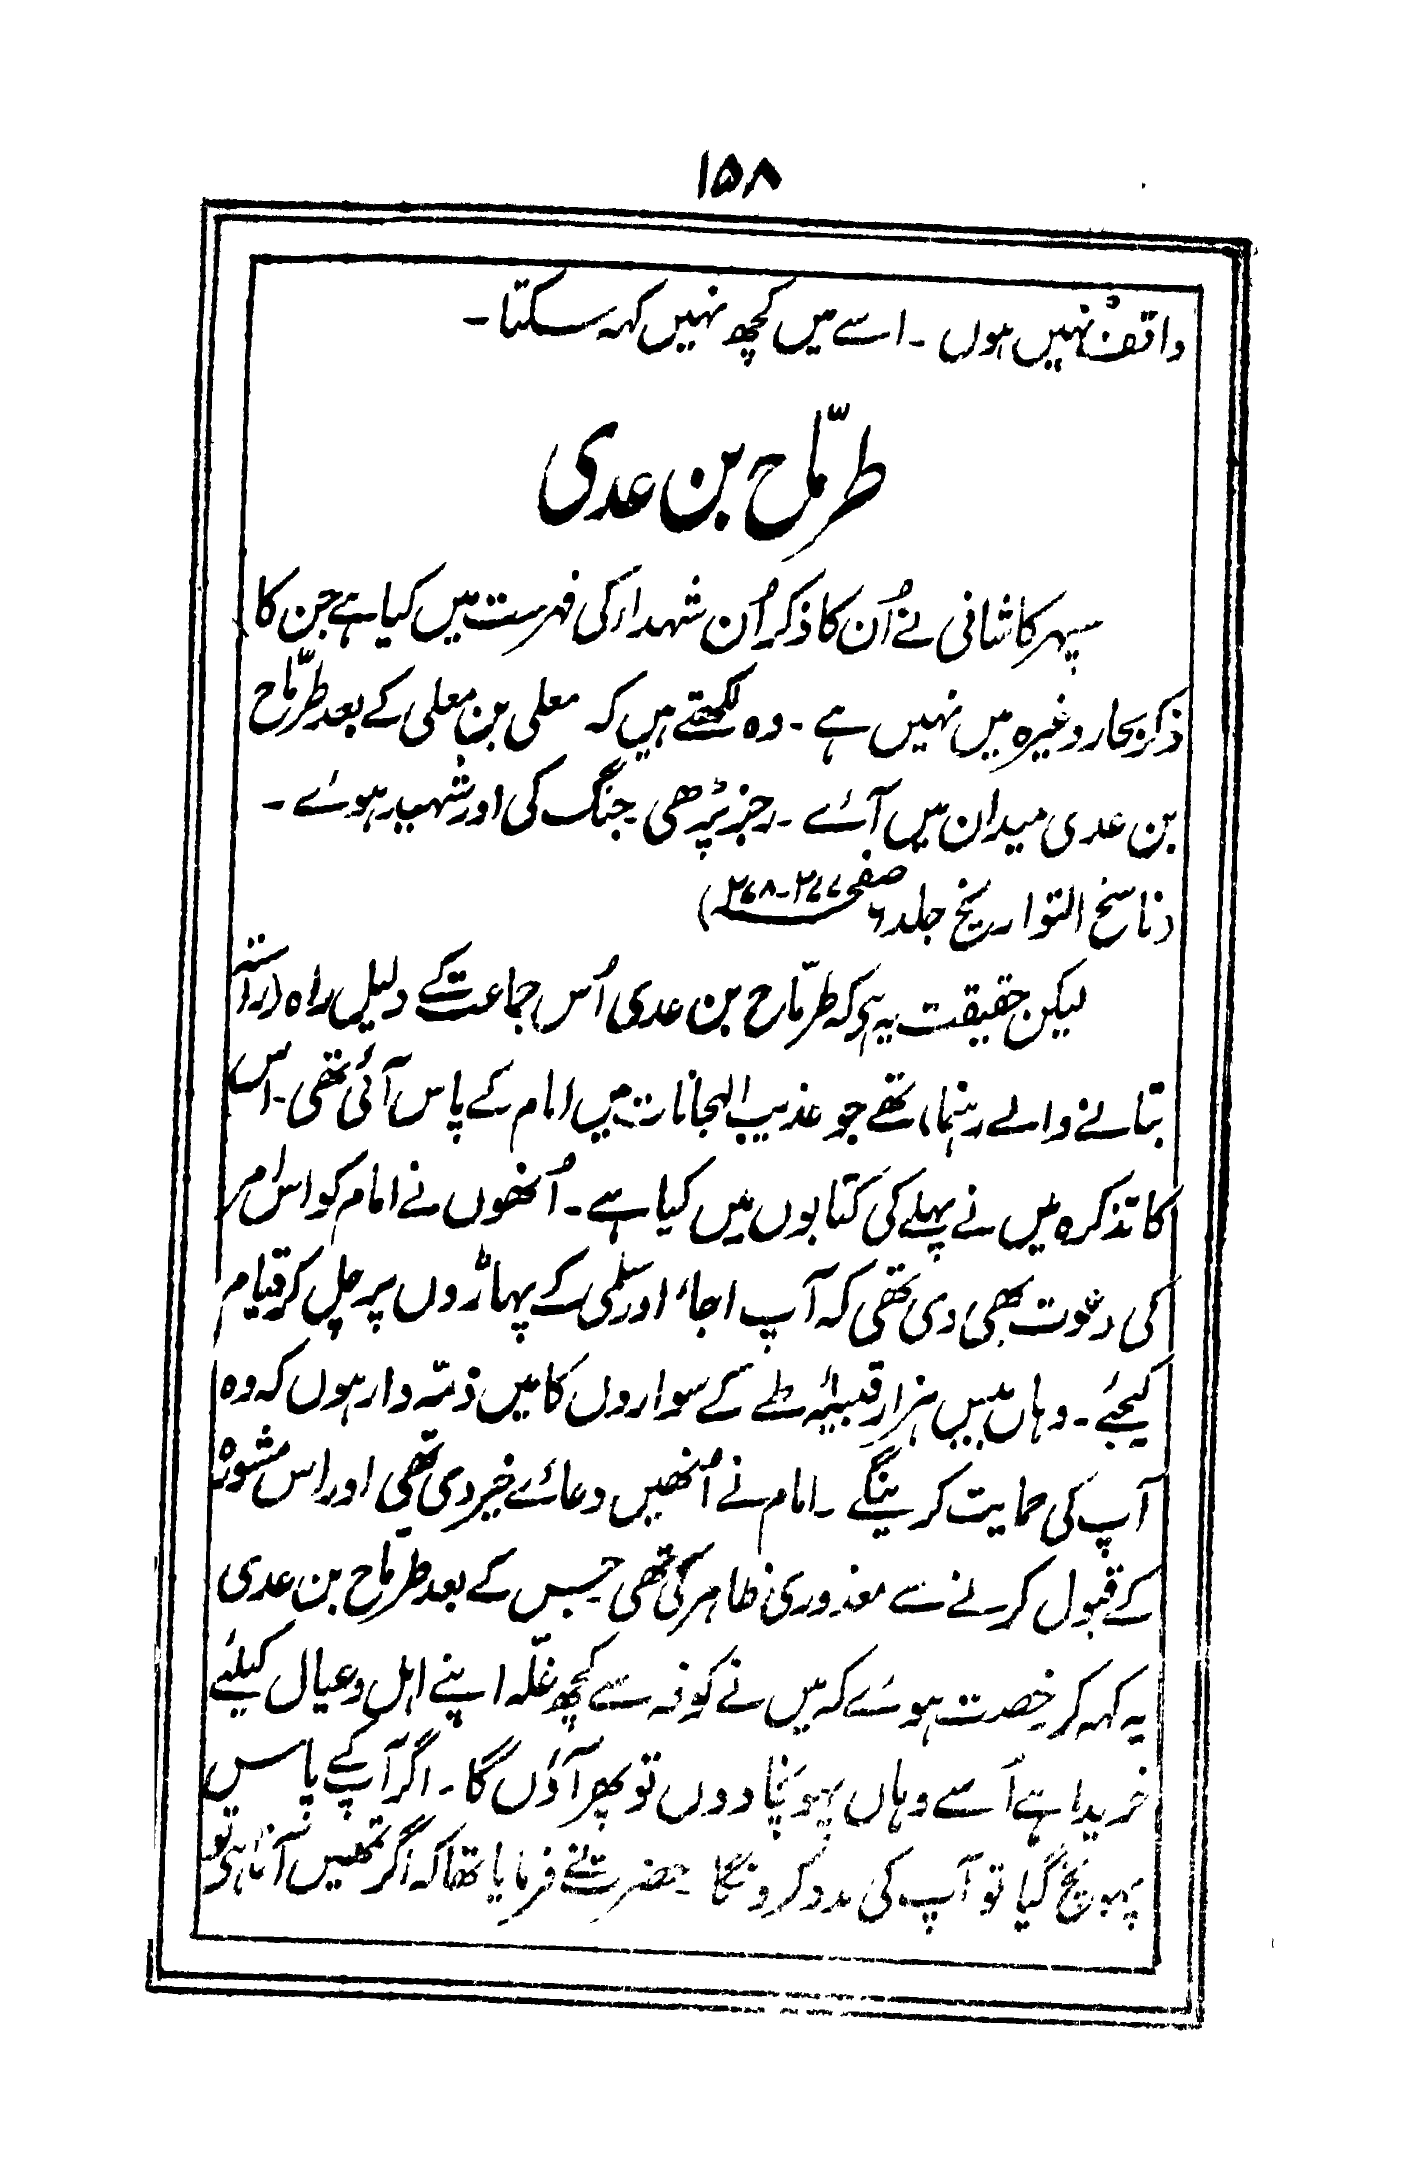 ۱۵۸
واقف نہیں ہوں ۔ اسے میں کچھ نہیں کہہ سکتا ۔
طرمّاح بن عدی
سپہر کاشانی نے اُن کا ذکر اُن شہداء کی فہرست میں کیا ہے جن کا
ذکر بحار وغیرہ میں نہیں ہے ۔ وہ لکھتے ہیں کہ معلی بن معلی کے بعد طرمّاح
بن عدی میدان میں آئے ۔ رجز پڑھی جنگ کی اور شہید ہوئے ۔
(ناسخ التواریخ جلد ۶ صفحہ ۲۷۷-۲۷۸)
لیکن حقیقت یہ ہی کہ طرمّاح بن عدی اُس جماعت کے دلیل راہ (راستہ
بتانے والے رہنما) تھے جو عذیب الہجانات میں امام کے پاس آئی تھی ۔ اس
کا تذکرہ میں نے پہلے کی کتابوں میں کیا ہے ۔ اُنھوں نے امام کو اس امر
کی دعوت بھی دی تھی کہ آپ اجاء اور سلمی کے پہاڑوں پر چل کر قیام
کیجئے ۔ وہاں بیس ہزار قبیلۂ طے کے سواروں کا میں ذمّہ دار ہوں کہ وہ
آپ کی حمایت کرینگے ۔ امام نے اُنھیں دعائے خیر دی تھی اور اس مشورہ
کے قبول کرنے سے معذوری ظاہر کی تھی جس کے بعد طرماح بن عدی
یہ کہہ کر رخصت ہوئے کہ میں نے کوفہ سے کچھ غلّہ اپنے اہل وعیال کیلئے
خریدا ہے اُسے وہاں پہونچا دوں تو پھر آؤں گا ۔ اگر آپ کے پاس
پہونچ گیا تو آپ کی مدد کرونگا حضرت نے فرمایا تھا کہ اگر تمھیں آنا ہی تو